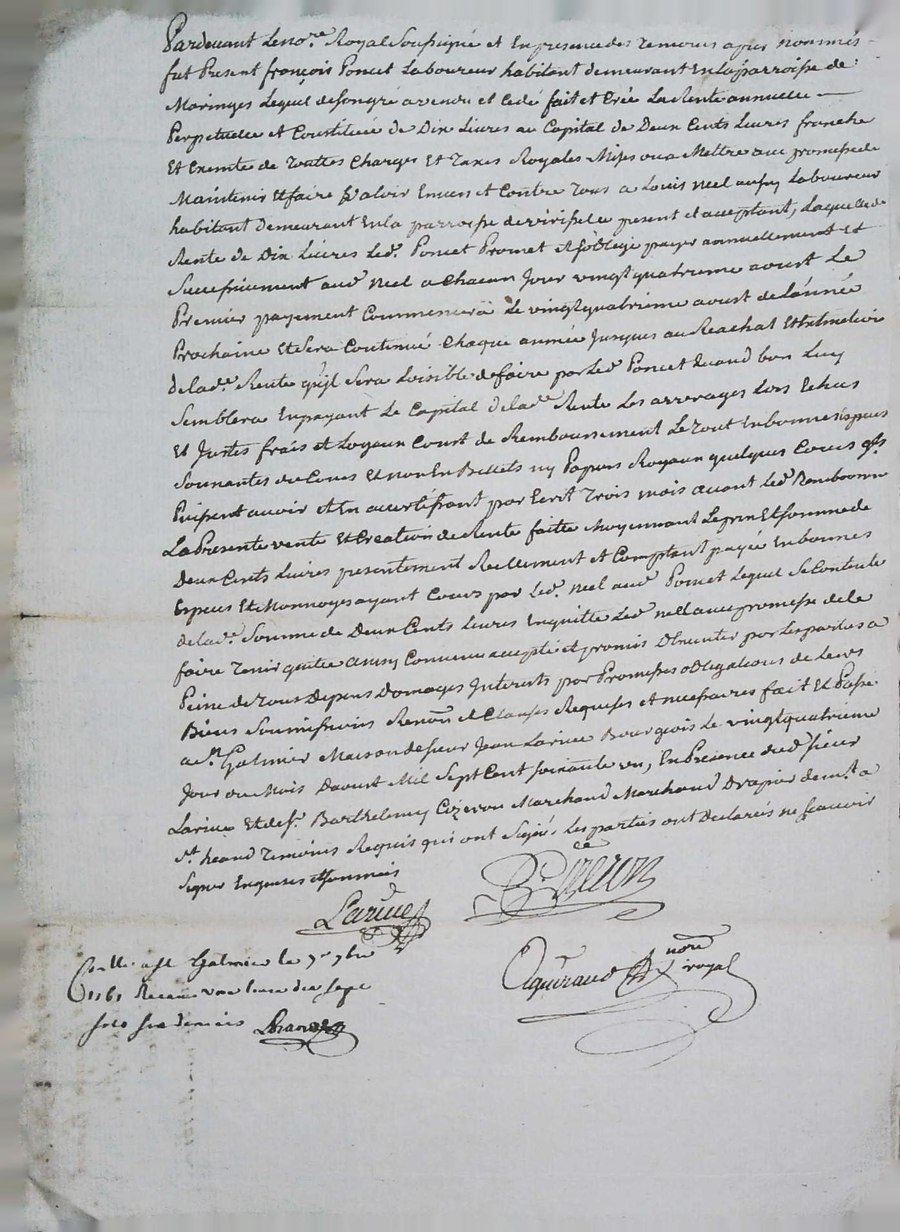 Pardevant Le nore. Royal Soussigné et En presence des Temoins apres nommés
fut Present françois Poncet Laboureur habitant demeurant En La parroisse de
Maringes Lequel de son gré a vendu et Cedé fait et Créé La Rente annuelle
Perpetuelle et Constituée de Dix Livres au Capital de Deux Cents Livres franche
Et Exemte de Touttes Charges Et Taxes Royales Mises ou a Mettre avec promesse de
Maintenir Et faire Valoir Envers et Contre Tous a Louis Neel aussy Laboureur
habitant Demeurant En La parroisse de viricelle present et acceptant, Laquelle
Rente de Dix Livres Led. Poncet Promet Et s'oblige payer annuellement Et
Successivement aud. Neel a Chacun Jour vingt quatrieme aoust Le
Premier payement Commencera Le vingt quatrieme aoust de L'année
Prochaine Et Sera Continué Chaque année Jusques au Reachat Et
de lade. Rente qu'il Sera Loisible de faire par Led Poncet Quand bon Luy
Semblera En payant Le Capital de lade Rente Les arrerages Lors Echus
Et Justes frais et Loyaux Court de Remboursement Le Tout En bonnes Espèces
Sonnantes de Cours Et non En Billets ny Papiers Royaux quelques Cours qls
Puissent avoir Et En avertissant par Ecrit Trois mois avant Led Rembourn
La Presente vente Et Creation de Rente faitte Moyennant Le prix Et somme de
Deux Cents Livres presentement Reellement et Comptant payée En bonnes
Espèces Et Monnoyes ayant Cours par Led. Neel aud Poncet Lequel Se Contente
de lade. Somme de Deux Cents Livres En quitte Led neel avec promesse de le
faire Tenir quitte ainsy Convenu accepté et promis D'Executer par Les parties a
Peine de Tous Depens Domages Interests par Promesses obligations de Leurs
Biens Soumissions Renon et Clauses Requises et necessaires fait Et Passé
a St. Galmier Maison de sieur Jean Larive Bourgois le vingt quatrieme
Jour du Mois Daoust Mil Sept Cent soixante un, En Présence dud sieur
Larive Et de sr. Barthelemy Cizeron Marchand Marchand Drapier demt. a
St. heand Temoins Requis qui ont Signé, Les parties ont Declarés ne scavoir
Signer Enquises Et sommés
Larive
B Cizeron
Con.lle a St Galmier le 7e 7bre
1761 Receu une livre dix sept
sols six deniers
nore
royal